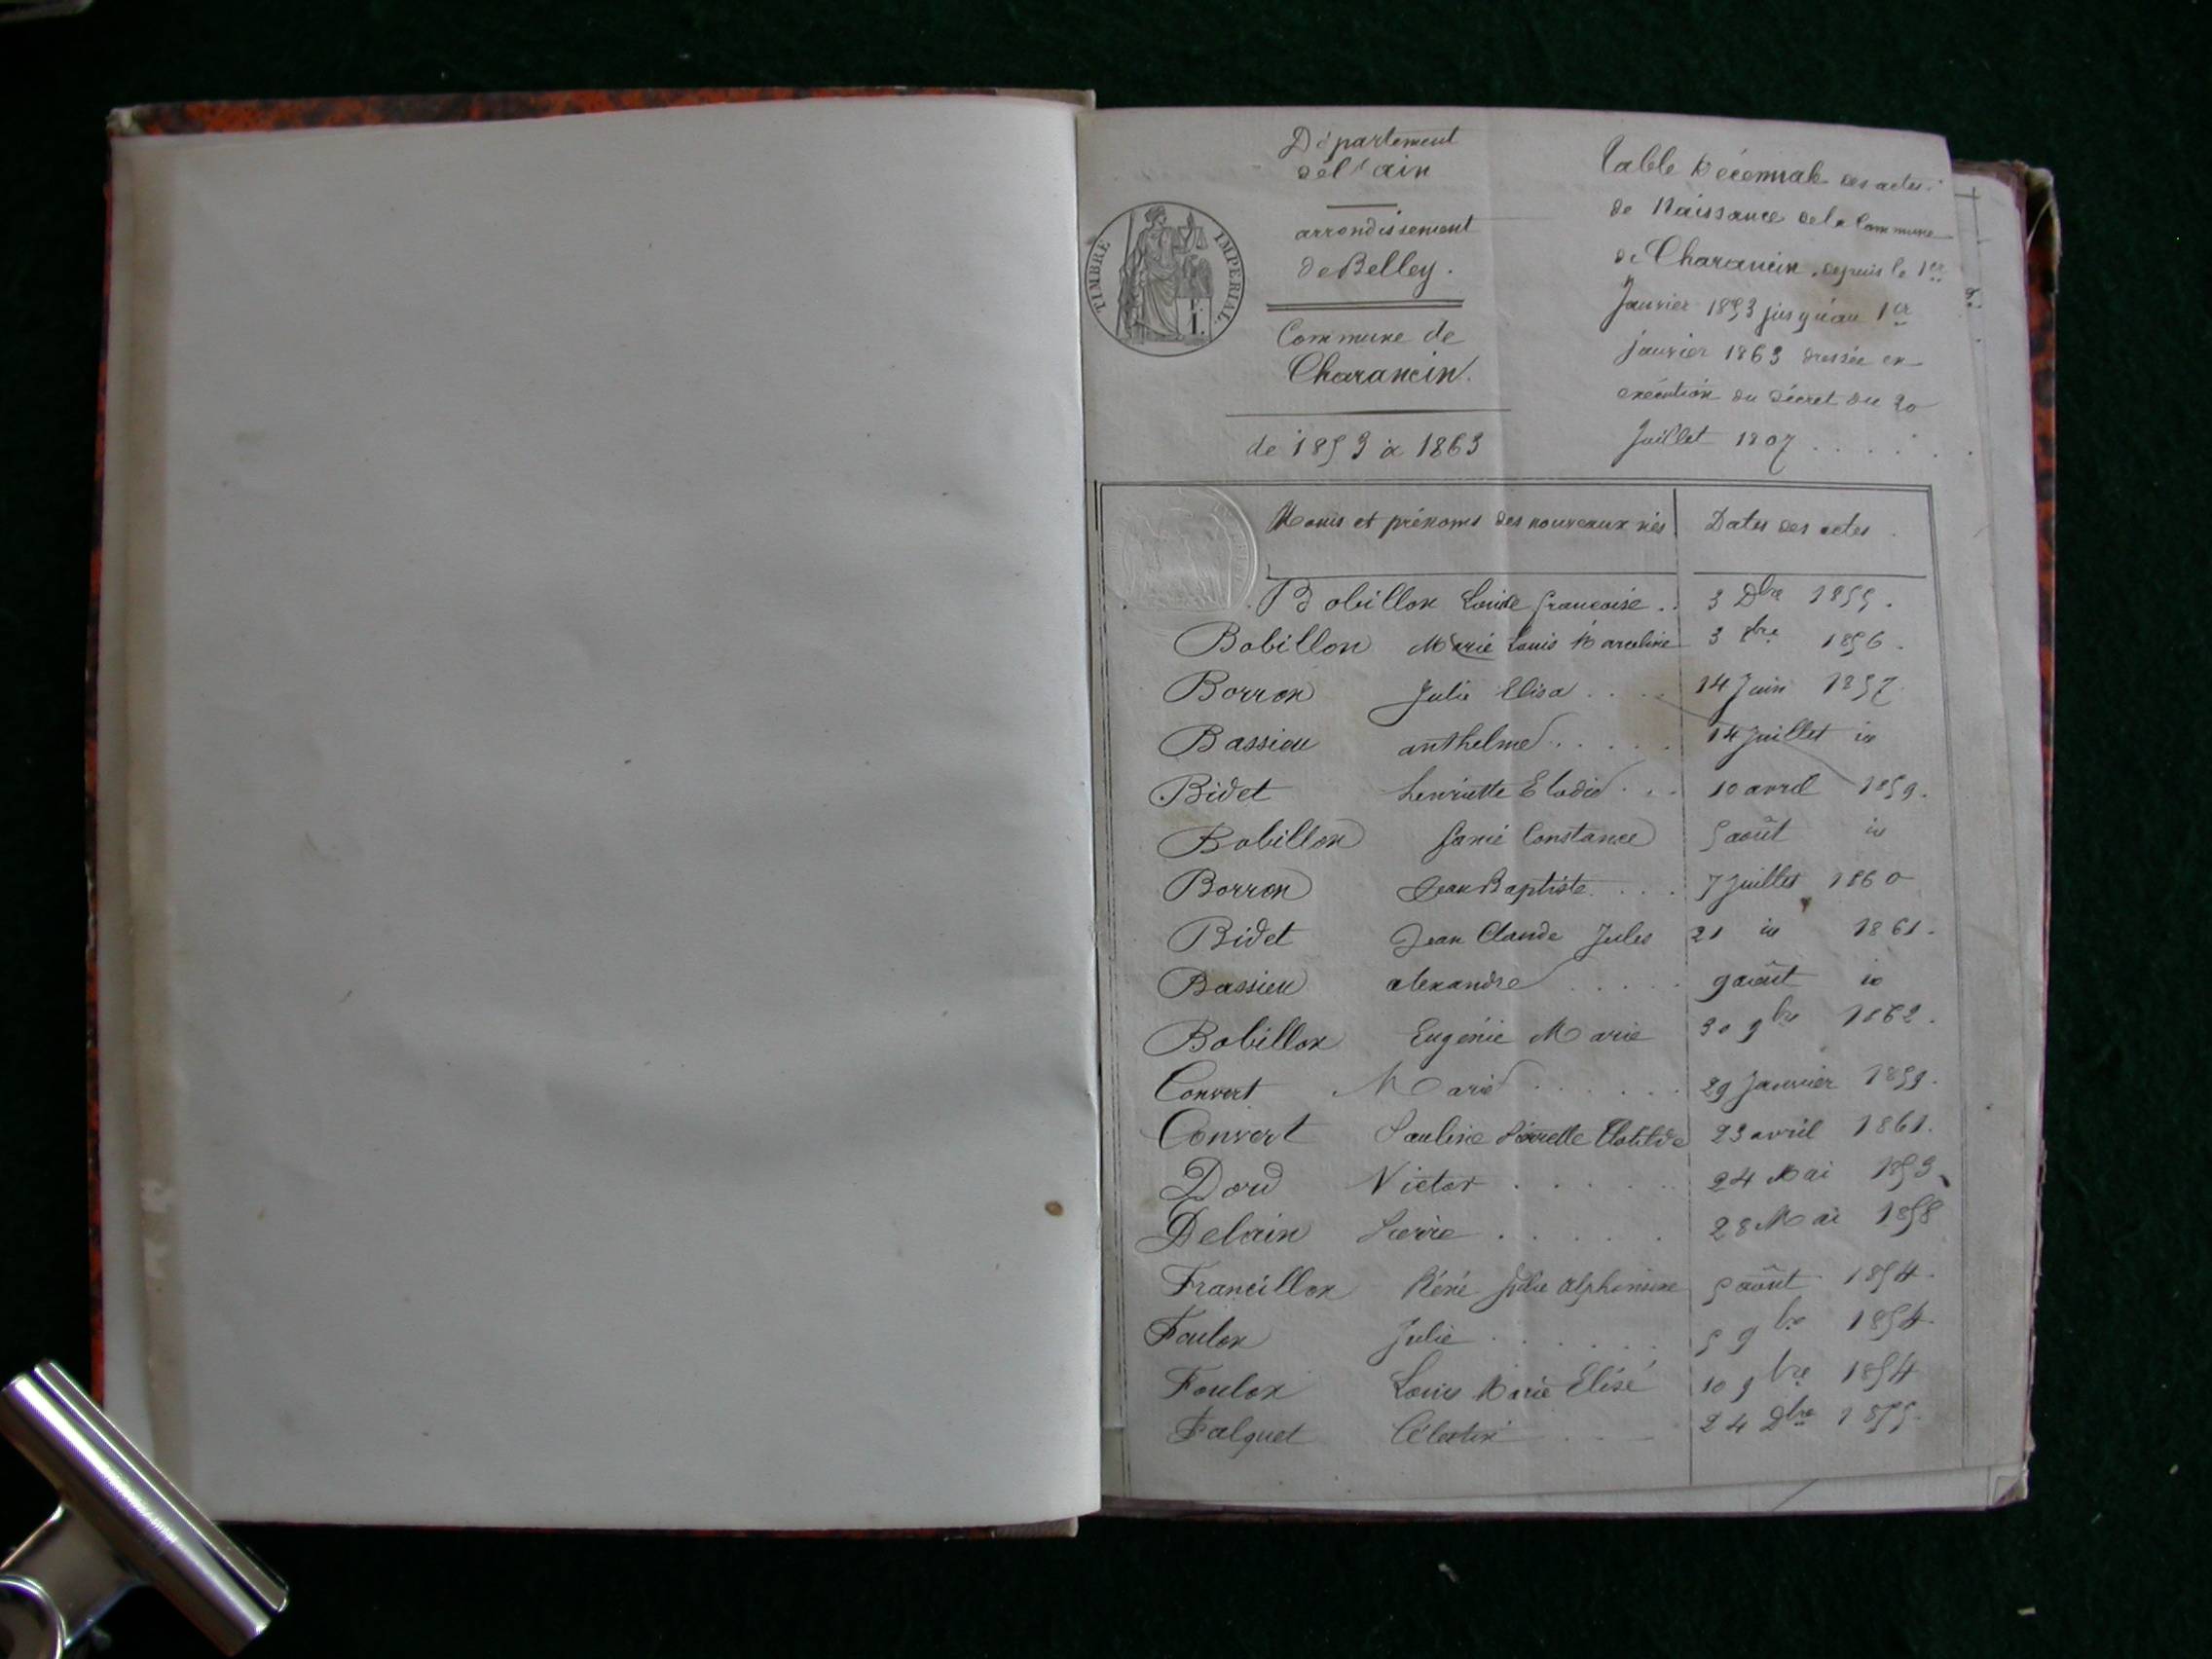 Département
de l'ain
arrondissement
de Belley.
Commune de
Charancin.
de 1853 à 1863
TIMBRE IMPERIAL
Table Décennale des actes
de Naissance de la Commune
de Charancin, depuis le 1er
Janvier 1853 jusqu'au 1er
janvier 1863 dressée en
exécution du décret du 20
Juillet 1807 . . . . . .
Noms et prénoms des nouveaux nés Dates des actes.
Bobillon Louise françoise . . 3 Dbre 1855.
Bobillon Marie Louis Marceline 3 bre 1856.
Borron Julie Elisa . . . . 14 Juin 1857
Bassieu anthelme . . . . . 14 Juillet id
Bidet henriette Elodie . . . 10 avril 1859.
Bobillon fanie Constance 5 août id
Borron Jean Baptiste . . . . 7 Juillet 1860
Bidet Jean Claude Jules 21 id 1861.
Bassieu alexandre . . . . . 9 août id
Bobillon Eugénie Marie 30 9bre 1862.
Convert Marie . . . . . . 29 Janvier 1859.
Convert Pauline Pierrette Clotilde 23 avril 1861.
Dord Victor . . . . . . 24 Mai 1853
Delain Pierre . . . . . . 28 Mai 1858
Francillon Réné Julie alphonsine 5 août 1854.
Foulon Julie . . . . . . 5 9bre 1854.
Foulon Louis Marie Elisé 10 9bre 1854
Falquet Célestin 24 Dbre 1855.